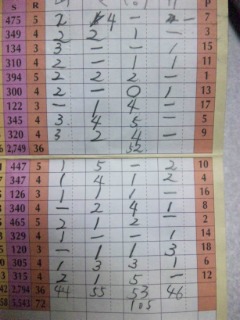 S R P
475 5 2 4 - 7
349 4 2 2 1 - 3
134 3 - - 1 15
310 4 2 - 1 1 11
394 5 2 2 2 - 1
300 4 2 - 0 1 13
122 3 - 1 4 - 17
345 4 3 4 5 - 5
320 4 3 2 4 - 9
2,749 36 52
447 5 1 5 - 2 10
347 4 1 4 1 2 4
126 3 1 1 1 - 16
340 4 - 2 4 1 8
465 5 2 1 2 - 2
329 4 1 - - 1 14
120 3 - 1 1 3 18
305 4 1 3 3 1 6
315 4 2 1 5 - 12
2,794 36 44 55 53 46
5,543 72 105